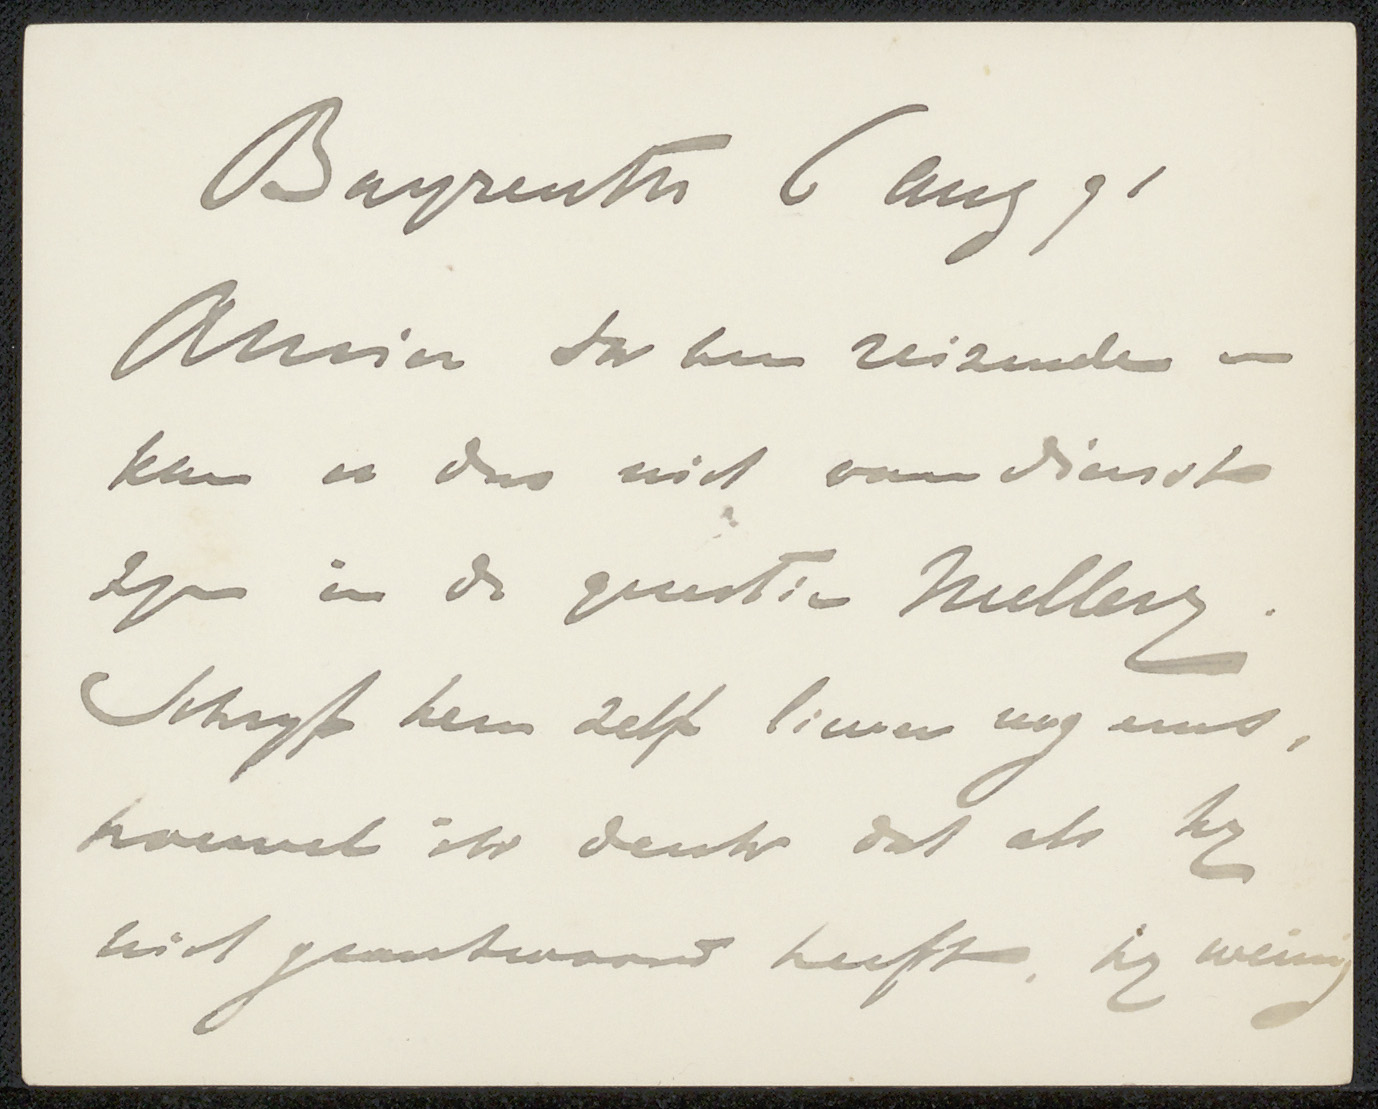 Bayreuth 6 Aug 91
Amice Ik ben reizende en
kan u dus niet van dienst
zijn in de questie Mellery.
Schryf hem zelf liever nog eens,
hoewel ik denk dat als hy
niet geantwoord heeft, hy weinig